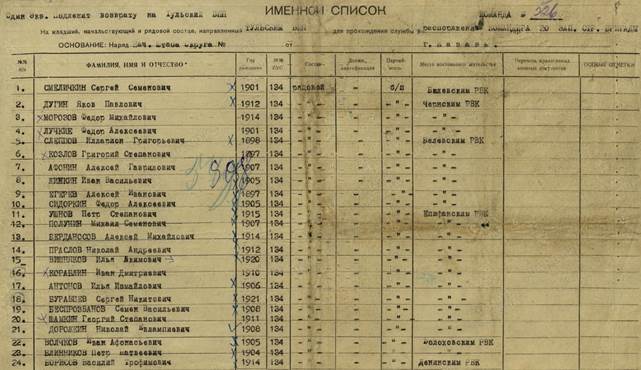 ИМЕННОЙ СПИСОК
Один экз. подлежит возврату на Тульский ВПП КОМАНДА № 526
На младший, начальствующий и рядовой состав, направленный Тульским ВПП для прохождения службы в распоряжение командира 20 зап. стр. бригады
ОСНОВАНИЕ: Наряд Нач. Штаба Округа № от г. Казань.
№№ п/п ФАМИЛИЯ, ИМЯ И ОТЧЕСТВО Год рождения № ВУС Состав Должн., квалификация Партийность Место постоянного жительства ОСОБЫЕ ОТМЕТКИ
1. СМЕЛИЧКИН Сергей Семенович 1901 134 рядовой - б/п Белевским РВК
2. ДУГИН Яков Павлович 1912 134 -"- - -"- Чернским РВК
3. МОРОЗОВ Федор Михайлович 1914 134 -"- - -"- -"-
4. ЛУЧКИЕ Федор Алексеевич 1901 134 -"- - -"- -"-
5. СЛЕПЦОВ Илларион Григорьевич 1898 134 -"- - -"- Белевским РВК
6. КОЗЛОВ Григорий Степанович 1897 134 -"- - -"- -"-
7. АФОНИН Алексей Гаврилович 1907 134 -"- - -"- -"-
8. Иван Васильевич 1905 134 -"- - -"- -"-
9. ЕГЕРЕВ Алексей Иванович 1897 134 -"- - -"- -"-
10. СИДОРКИН Федор Алексеевич 1905 134 -"- - -"- -"-
11. УШНОВ Петр Степанович 1915 134 -"- - -"- Епифанским РВК
12. ПОЛУНИН Михаил Семенович 1907 134 -"- - -"- -"-
13. БЕРДАНОСОВ Алексей Михайлович 1914 134 -"- - -"- -"-
14. ПРАСЛОВ Николай Андреевич 1912 134 -"- - -"- -"-
15. ВИШНЯКОВ Илья Акимович 1920 134 -"- - -"- -"-
16. КОРАБЛИН Иван Дмитриевич 1910 134 -"- - -"- -"-
17. АНТОНОВ Илья Измайлович 1906 134 -"- - -"- -"-
18. БУРАЦЕВ Сергей Никитович 1921 134 -"- - -"- -"-
19. БЕСПРОЗВАНОВ Семен Васильевич 1908 134 -"- - -"- -"-
20. ШАМКИН Георгий Степанович 1911 134 -"- - -"- -"-
21. ДОРОЖКИН Николай 1908 134 -"- - -"- -"-
22. ВОЛЧКОВ Иван Афонасьевич 1905 134 -"- - -"- Болоховским РВК
23. БЛИННИКОВ Петр Матвеевич 1904 134 -"- - -"- -"-
24. БОРИСОВ Василий Трофимович 1914 134 -"- - -"- Денинским РВК